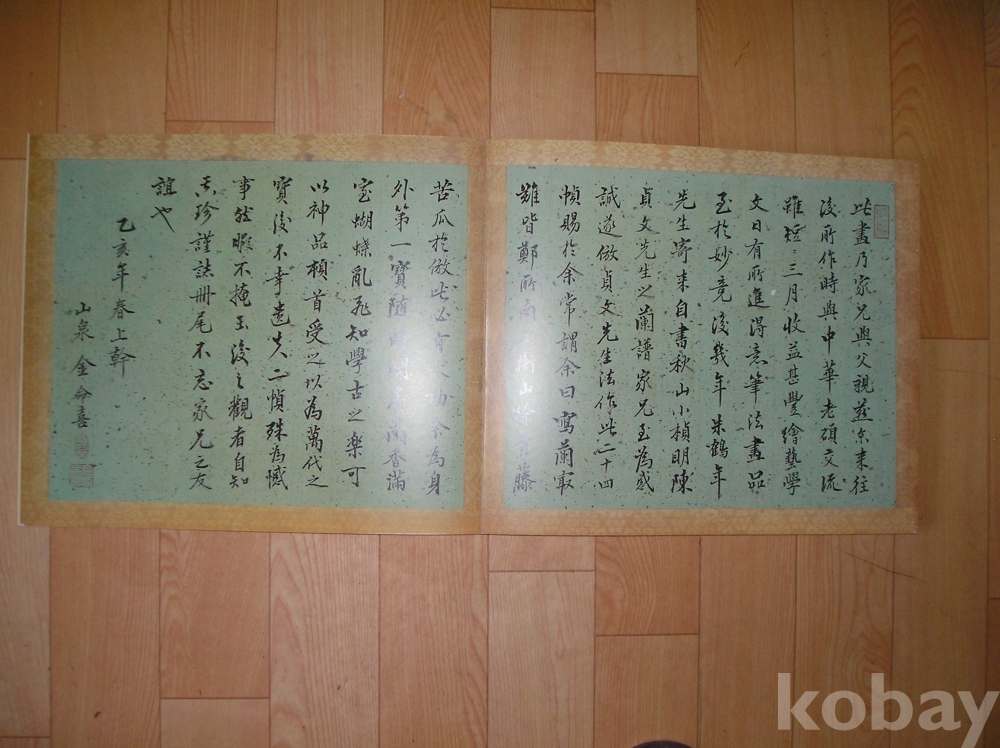 此畫乃家兄與父親燕京来往
後所作時與中華老碩交流
雖短三月收益甚豐繪藝學
文日有所進得意筆法畫品
至於妙竟後幾年朱鶴年
先生寄来自書秋山小楨明陳
貞文先生之蘭譜家兄至為感
誠遂倣貞文先生法作此二十四
幀賜於余常謂余曰寫蘭取
難皆鄭所南 山 藤
苦瓜於倣此必 為身
外第一寶随 香滿
室蝴蝶亂飛知學古之樂可
以神品頓首受之以為萬代之
寶後不幸遺失二幀殊為憾
事然暇不掩玉後之觀者自知
珍謹誌册尾不忘家兄之友
誼也
乙亥年春上幹
山泉金命喜
kobay